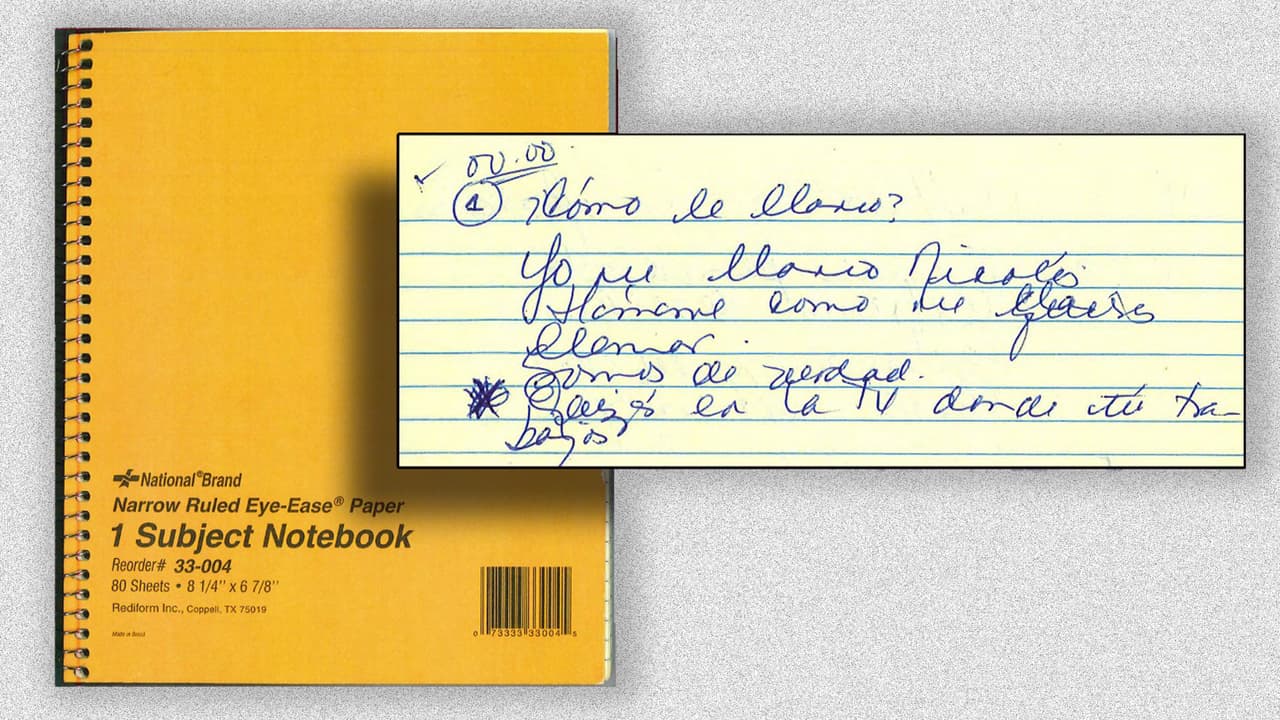 National®Brand
Narrow Ruled Eye-Ease® Paper
1 Subject Notebook
Reorder# 33-004
80 Sheets • 8 1/4" x 6 7/8"
Rediform Inc., Coppell, TX 75019
Made in Brazil
0 73333 33004 5
00.00
1 ¿Cómo le llamo?
Yo me llamo Nicolás
Llámame como me quieras
llamar.
Somos de verdad.
en la TV donde tú tra-
bajas